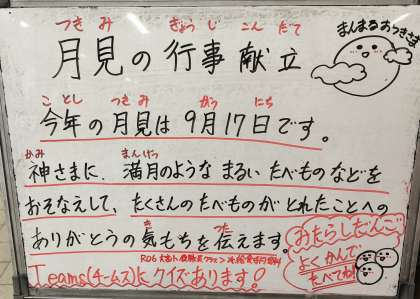 つきみ ぎょうじ こんだて
月見の行事献立
まんまるおつきさま
ことし つきみ がつ にち
今年の月見は9月17日です。
かみ まんげつ
神さまに、満月のような まるい たべものなどを
おそなえして、たくさんのたべものが とれたことへの
き つた
ありがとうの気もちを伝えます。
Teams(チームス)に クイズあります!
おたらしだんご
よくかんで
たべてね!